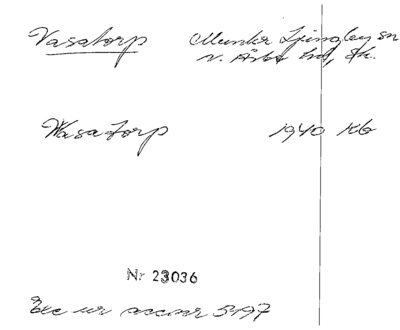 Vasatorp Munka Ljungby sn
N. Åsbo hd, Sk.
Wasatorp 1940 Kb
Nr 23036
Exc ur 5497